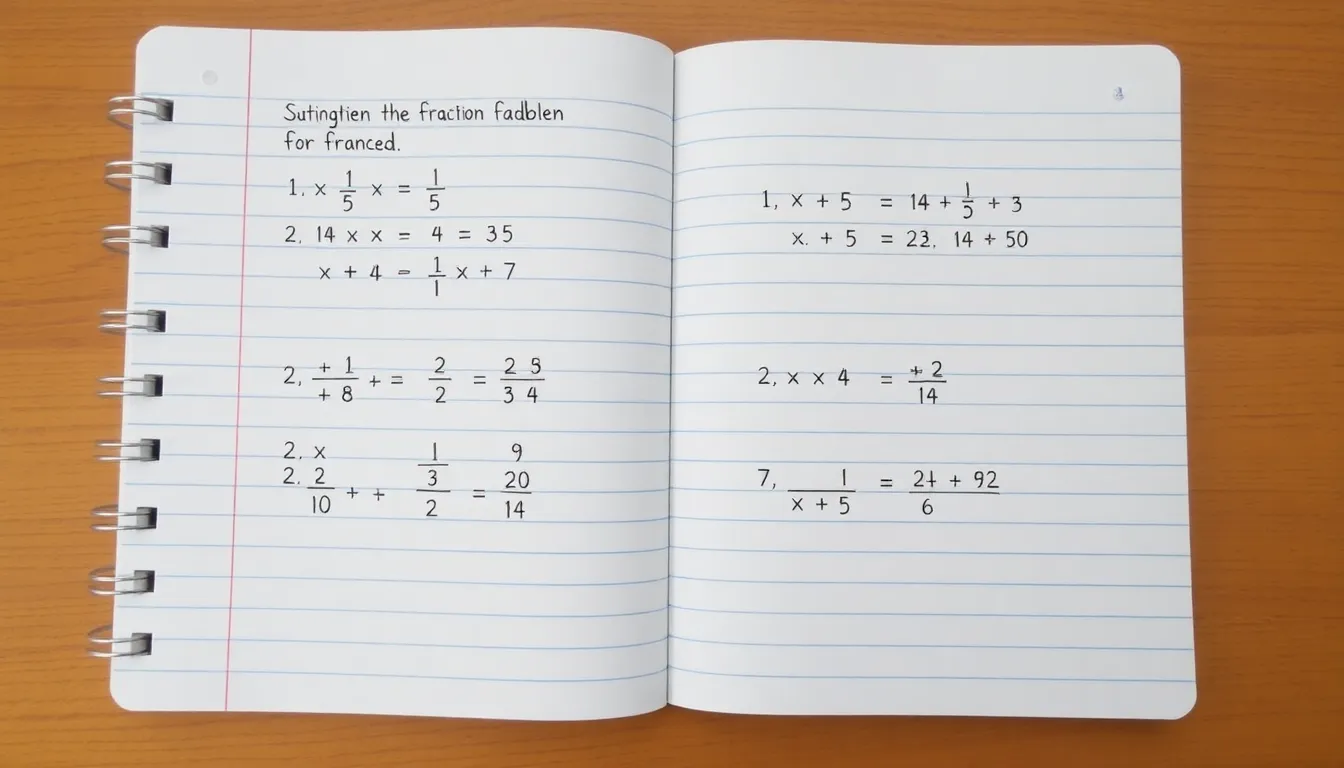 Sutingtien the fraction fadblen
for franced.
1. x 1/5 x = 1/5
2. 14 x x = 4 = 35
x + 4 = 1/1 x + 7
2, + 1/+ 8 + = 2/2 = 2 3/3 4
2. x 1 9
2. 2/10 + + 3/2 = 20/14
1, x + 5 = 14 + 1/5 + 3
x. + 5 = 23. 14 + 50
2, x x 4 = + 2/14
7, 1/x + 5 = 24 + 92/6